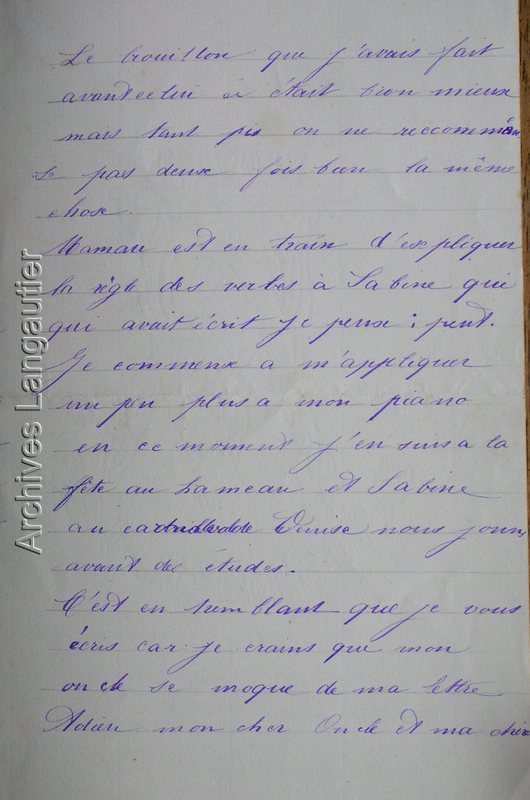 Le brouillon que j'avais fait
avant celui ci était bien mieux
mais tant pis on ne recommen
ce pas deux fois bien la même
chose.
Maman est en train d'expliquer
la règle des verbes à Sabine qui
qui avait écrit je peux : peut.
Je commence a m'appliquer
un peu plus a mon piano
en ce moment j'en suis a la
fête au hameau et Sabine
au Venise nous jouons
avant des études.
C'est en tremblant que je vous
écris car je crains que mon
oncle se moque de ma lettre
Adieu mon cher Oncle et ma chère
Archives Langautier